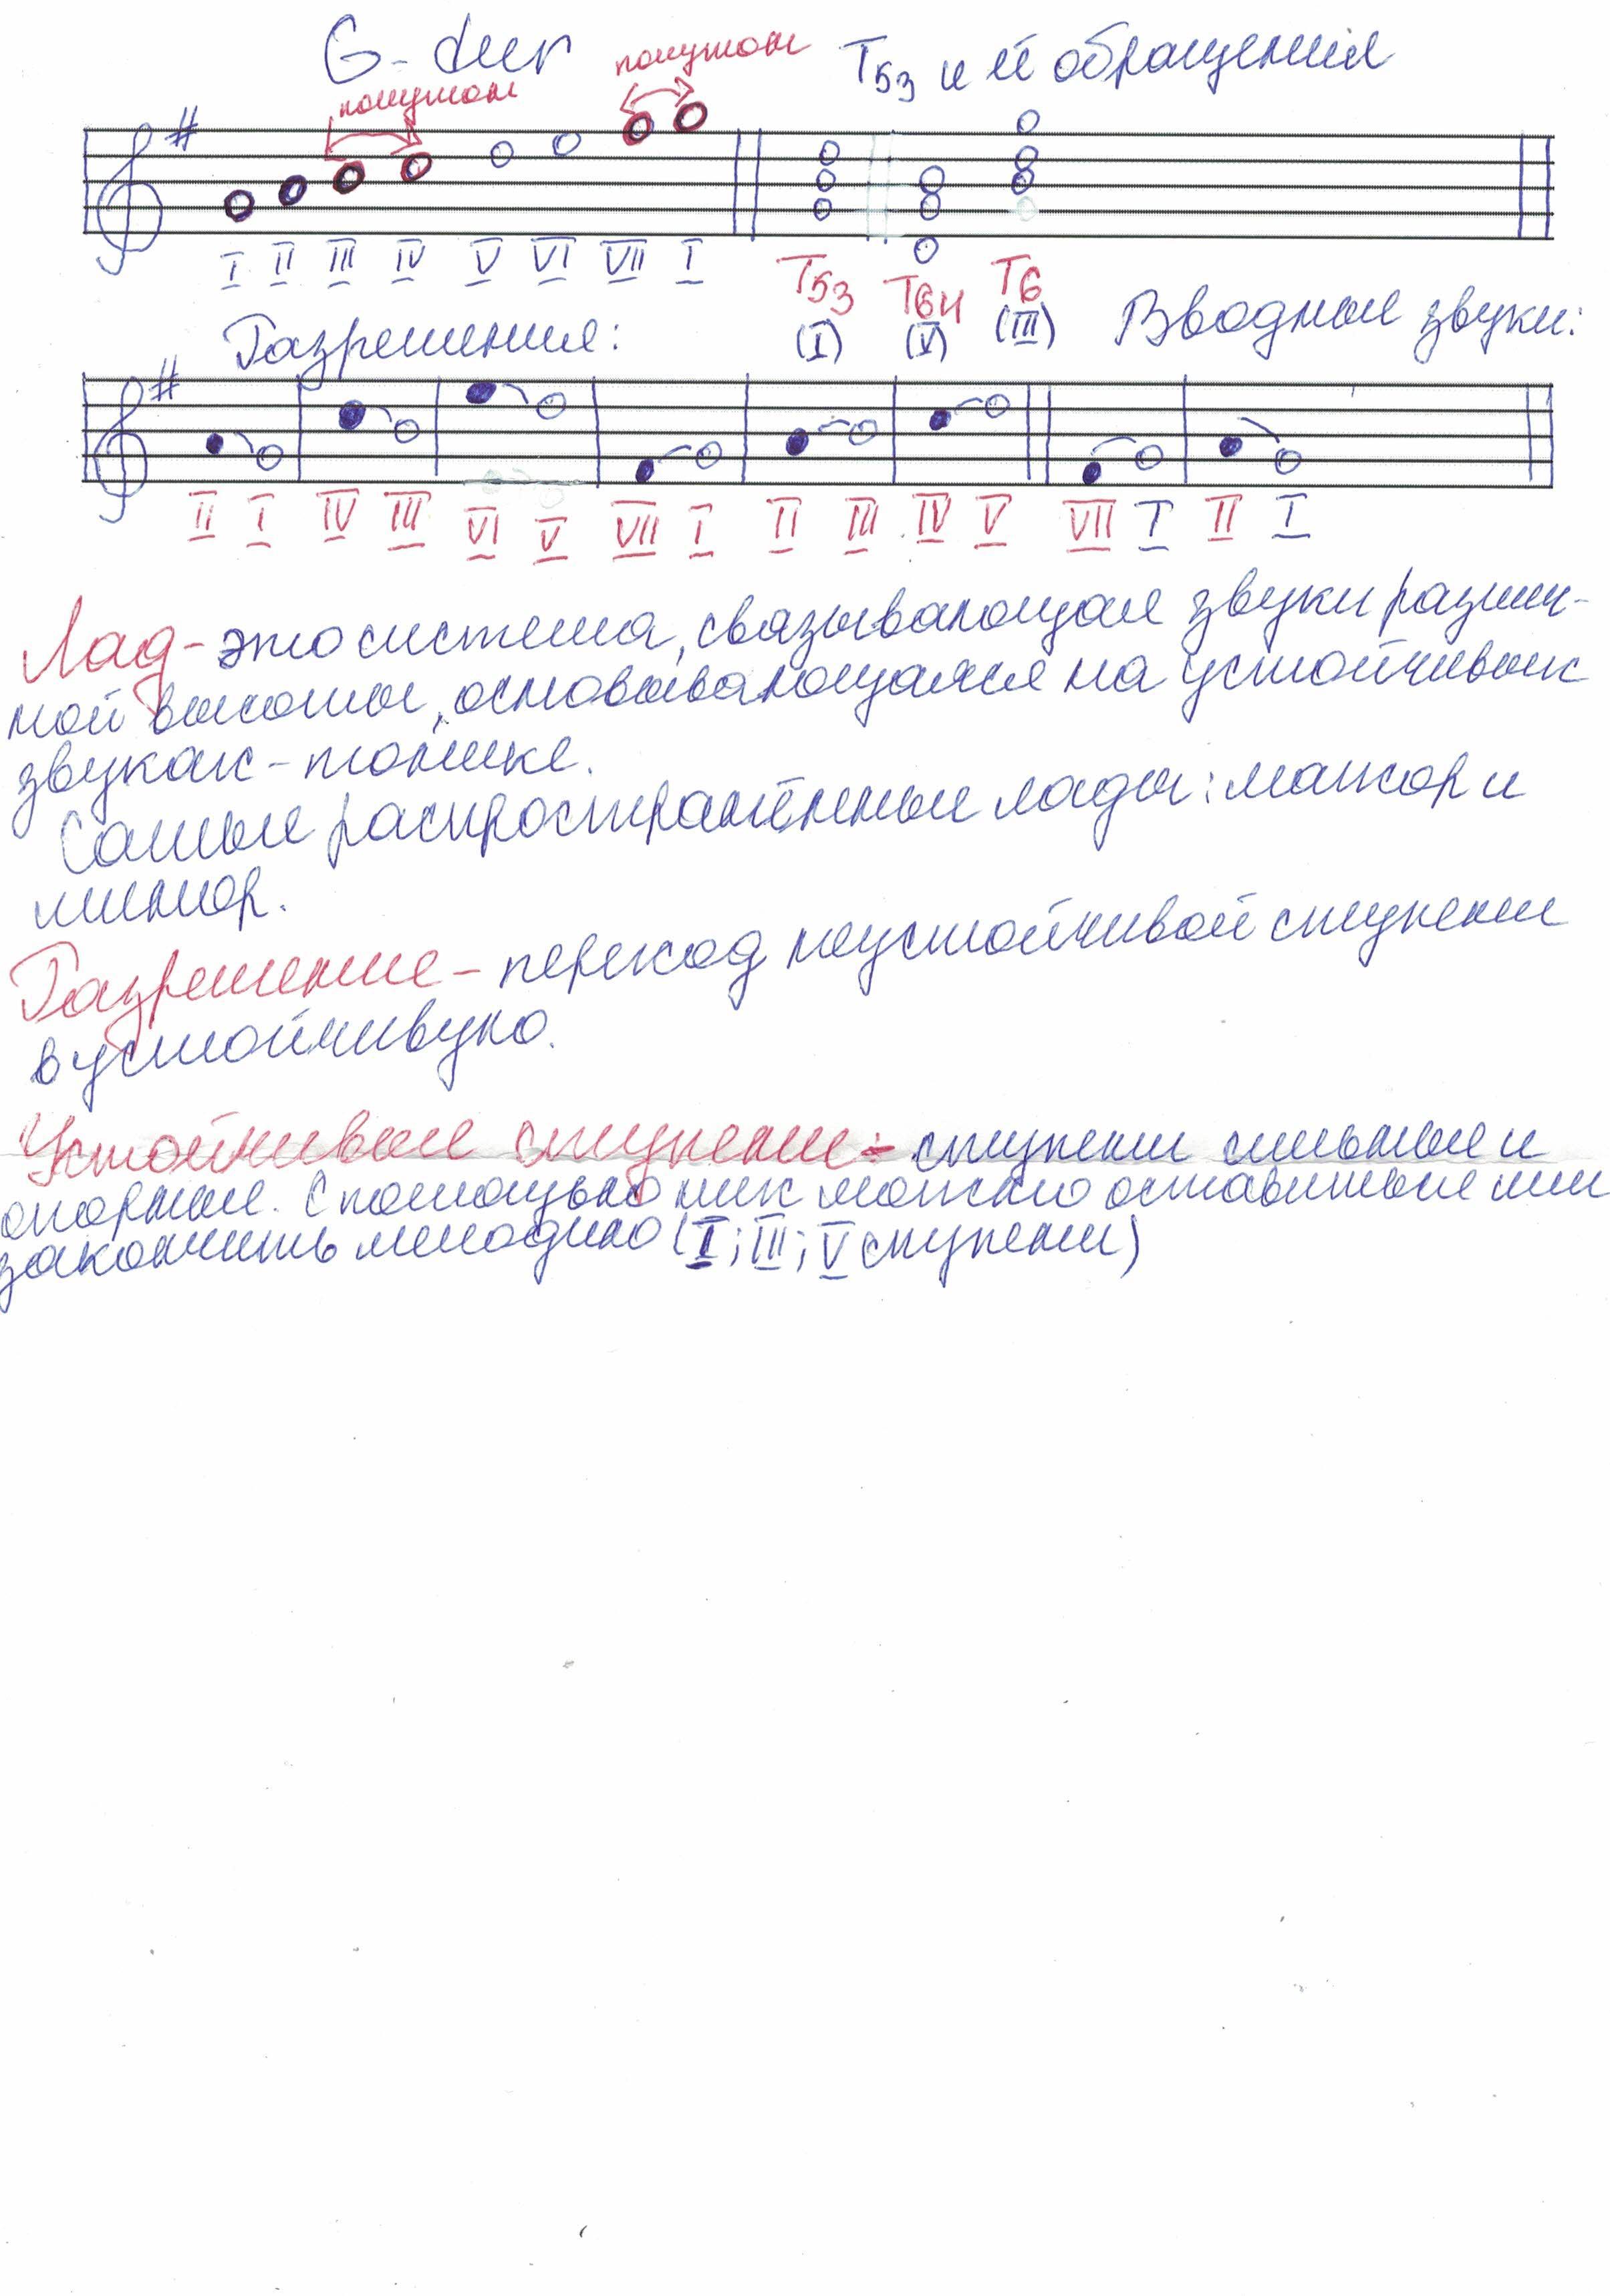 G-dur
полутон
полутон
T53 и её обращения
I II III IV V VI VII I
T53 T64 T6
(I) (V) (III)
Разрешения:
Вводные звуки:
II I IV III VI V VII I II III IV V VII I II I
Лад - это система, связывающая звуки различ-
ной высоты, основывающаяся на устойчивых
звуках - тонике.
Самые распространённые лады: мажор и
минор.
Разрешение - переход неустойчивой ступени
в устойчивую.
Устойчивые ступени - ступени сильные и
опорные. С помощью них можно остановиться или
закончить мелодию (I; III; V ступени)